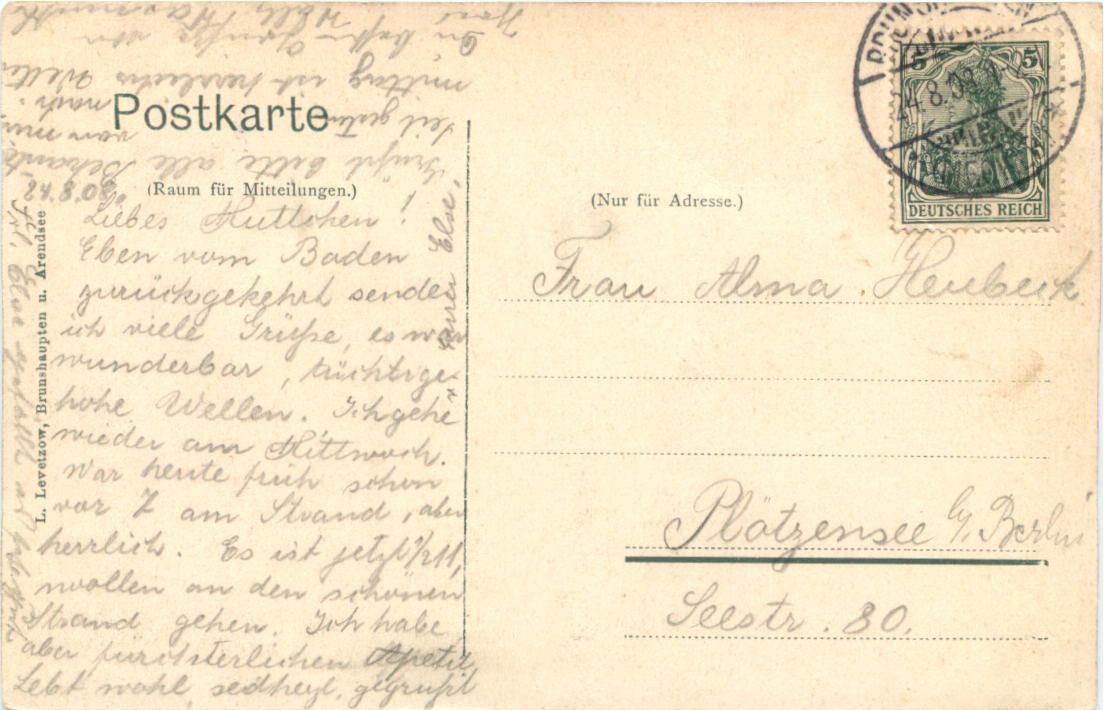 Postkarte
(Raum für Mitteilungen.)
24.8.08
Liebes Muttchen!
Eben vom Baden
zurückgekehrt sende
ich viele Grüße, es war
wunderbar, tüchtige
hohe Wellen. Ich gehe
wieder am Mittwoch.
War heute früh schon
vor 7 am Strand, aber
herrlich. Es ist jetzt ½11,
wollen an den schönen
Strand gehen. Ich habe
aber fürchterlichen Apetit.
Lebt wohl, seid herzl. gegrüßt
Eurer Else.
Grüßt bitte alle
Seit gestern
mittag ist herrliches Wetter
L. Levetzow, Brunshaupten u. Arendsee
(Nur für Adresse.)
5 5
24.8.08
DEUTSCHES REICH
Frau Alma Heubeck
Plötzensee b/ Berlin
Seestr. 80.